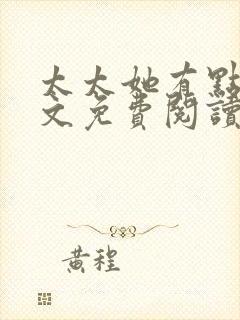 太太她有點
文免費閱讀
黃程